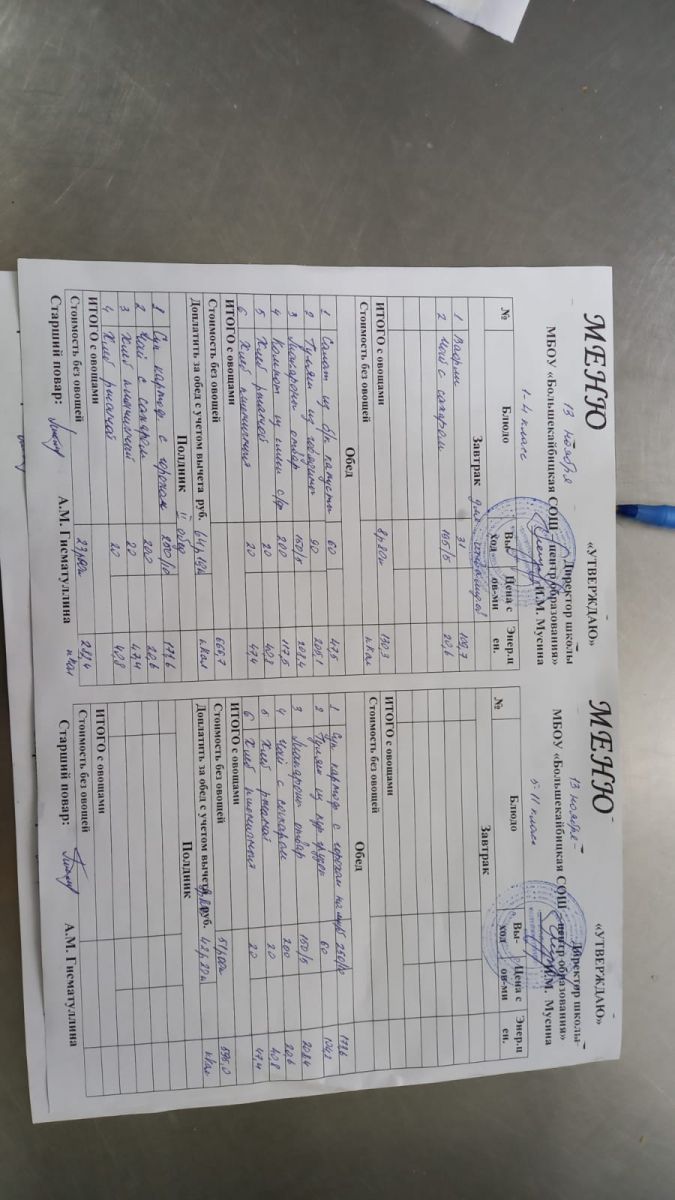 «УТВЕРЖДАЮ»
Директор школы
МБОУ «Большекайбицкая СОШ – центр образования»
И.М. Мусина
МЕНЮ
13 ноября
1-4 класс
№ Блюдо Вы-ход Цена с ов-ми Энер.ц ен.
Завтрак для
1 Вафли 31 109,7
2 Чай с сахаром 195/5 20,6
ИТОГО с овощами 130,3
Стоимость без овощей 8р20к ккал
Обед
1 Салат из б/к капусты 60 47,5
2 Гуляш из говядины 90 205,1
3 Макароны отвар 150/5 208,4
4 Компот из с/ф 200 117,5
5 Хлеб ржаной 20 40,8
6 Хлеб пшеничный 20 47,4
ИТОГО с овощами 666,7
Стоимость без овощей ккал
Доплатить за обед с учетом вычета руб. 64р19к
Полдник II обед
1 Суп картоф с горохом 200/10 172,6
2 Чай с сахаром 200 20,6
3 Хлеб пшеничный 20 47,4
4 Хлеб ржаной 20 40,8
ИТОГО с овощами 281,4
Стоимость без овощей ккал
Старший повар: А.М. Гисматуллина
«УТВЕРЖДАЮ»
Директор школы-
МБОУ «Большекайбицкая СОШ – центр образования»
И.М. Мусина
МЕНЮ
13 ноября-
5-11 класс
№ Блюдо Вы-ход Цена с ов-ми Энер.ц ен.
Завтрак
ИТОГО с овощами
Стоимость без овощей
Обед
1 Суп картоф с горохом на 250/10 172,6
2 Гуляш из кур грудок 60
3 Макароны отвар 150/5 208,4
4 Чай с сахаром 200 20,6
5 Хлеб ржаной 20 40,8
6 Хлеб пшеничный 20 47,4
ИТОГО с овощами
Стоимость без овощей 51р00к ккал
Доплатить за обед с учетом вычета руб. 42р20к
Полдник
ИТОГО с овощами
Стоимость без овощей
Старший повар: А.М. Гисматуллина